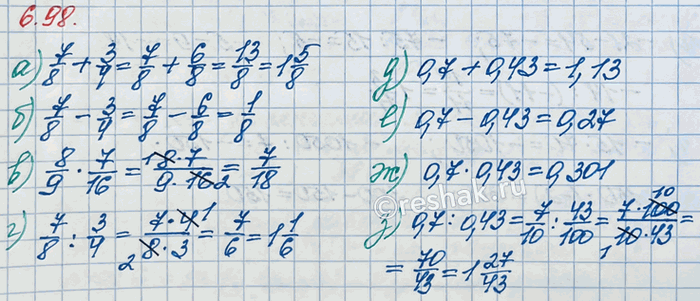 6.98.
а) 7/8 + 3/4 = 7/8 + 6/8 = 13/8 = 1 5/8
б) 7/8 - 3/4 = 7/8 - 6/8 = 1/8
в) 8/9 · 7/16 = 1 8 · 7 / 9 · 16 2 = 7/18
г) 7/8 : 3/4 = 7 · 4 1 / 2 8 · 3 = 7/6 = 1 1/6
д) 0,7 + 0,43 = 1,13
е) 0,7 - 0,43 = 0,27
ж) 0,7 · 0,43 = 0,301
з) 0,7 : 0,43 = 7/10 : 43/100 = 7 · 100 10 / 1 10 · 43 =
= 70/43 = 1 27/43
reshak.ru